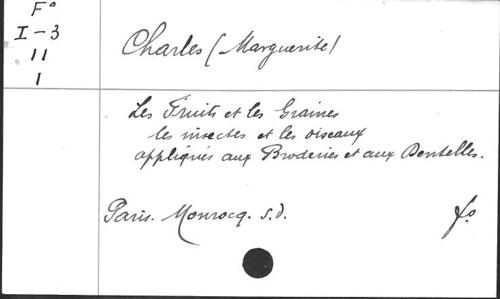 F°
I-3
11
1
Charles (Marguerite)
Les Fruits et les Graines
les insectes et les oiseaux
appliqués aux Broderies et aux Dentelles.
Paris. Monrocq. s.d.
fo